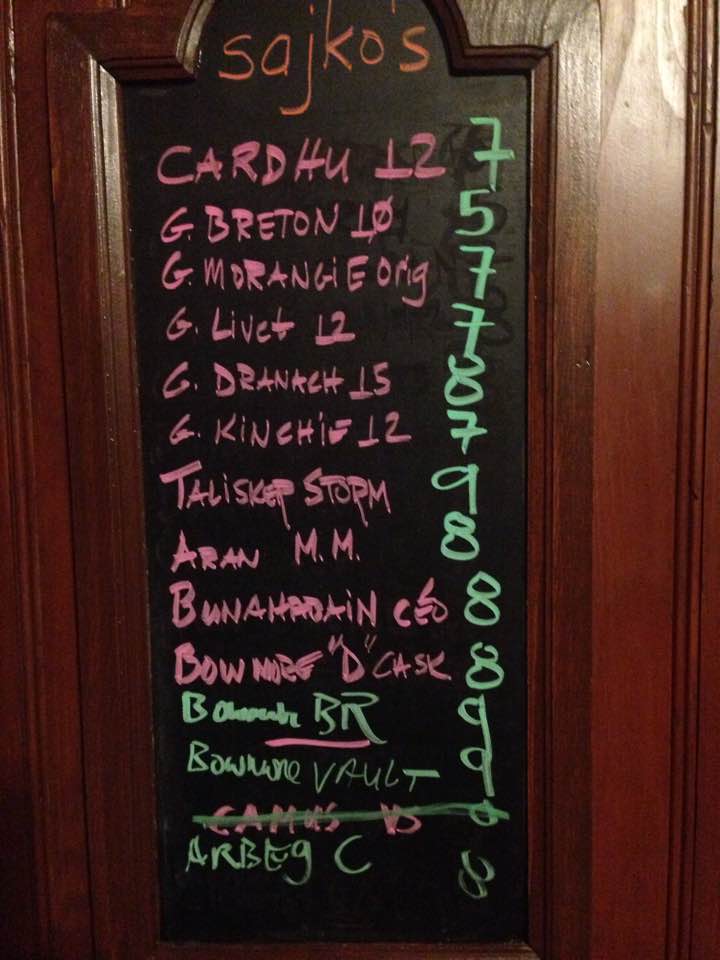 sajko's
CARDHU 12 7
G. BRETON 10 5
G. MORANGIE Orig 7
G. Livet 12 7
G. DRANACH 15 8
G. KINCHIE 12 7
TALISKER STORM 9
ARAN M.M. 8
BUNAHABAIN CÉO 8
BOWMORE "D" CASK 8
BR 9
Bowmore VAULT 9
CAMUS VS
ARBEG C 8